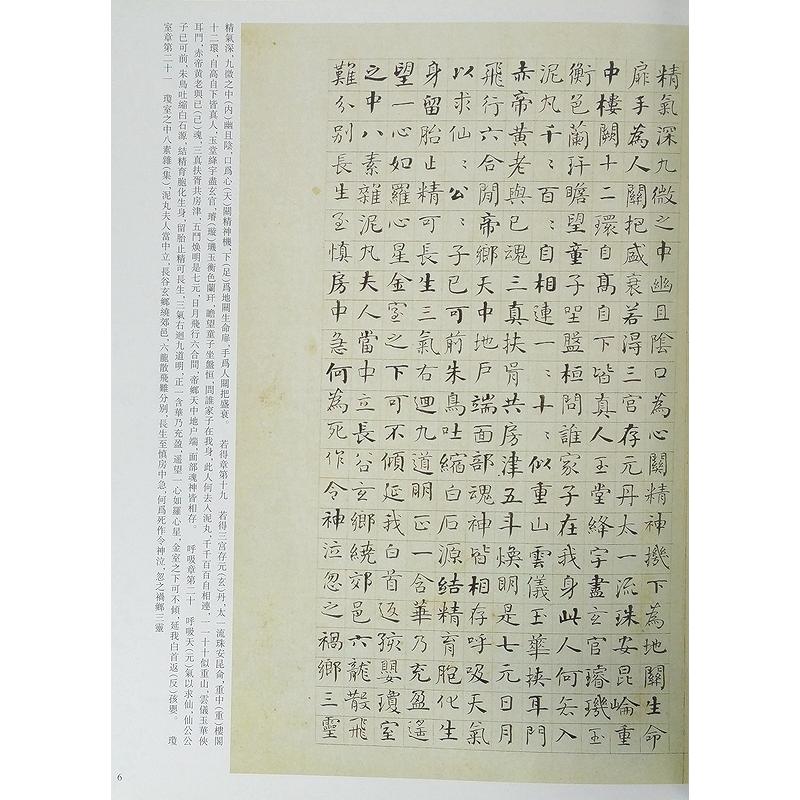 精氣深九微之中幽且陰口為心關精神機下為地關生命
扉手為人關把盛衰若得三宮存元丹太一流珠安昆崙重
中樓闕十二環自髙自下皆真人玉堂絳宇盡玄官璿璣玉
衡色蘭玕瞻望童子坐盤桓問誰家子在我身此人何去入
泥丸千〻百〻自相連一〻十〻似重山雲儀玉華俠耳門
赤帝黃老與已魂三真扶胥共房津五斗煥明是七元日月
飛行六合間帝鄉天中地戶端面部魂神皆相存呼吸天氣
以求仙〻公〻子已可前朱鳥吐縮白石源結精育胞化生
身留胎止精可長生三氣右迴九道明正一含華乃充盈遙
望一心如羅心星金室之下可不傾延我白首返孩嬰瓊室
之中八素雜泥丸夫人當中立長谷玄鄉繞郊邑六龍散飛
難分別長生至慎房中急何為死作令神泣忽之禍鄉三靈
精氣深,九微之中(内)幽且陰,口爲心(天)關精神機,下(足)爲地關生命扉,手爲人關把盛衰。 若得章第十九 若得三宫存元(玄)丹,太一流珠安昆侖,重中(重)樓闕
十二環,自高自下皆真人,玉堂絳宇盡玄官,璿(璇)璣玉衡色蘭玕,瞻望童子坐盤桓,問誰家子在我身,此人何去入泥丸,千千百百自相連,一一十十似重山,雲儀玉華俠
耳門,赤帝黄老與已(己)魂,三真扶胥共房津,五鬥焕明是七元,日月飛行六合間,帝鄉天中地户端,面部魂神皆相存。 呼吸章第二十 呼吸天(元)氣以求仙,仙公公
子已可前,朱鳥吐縮白石源,結精育胞化生身,留胎止精可長生,三氣右迴九道明,正一含華乃充盈,遥望一心如羅心星,金室之下可不傾,延我白首返(反)孩嬰。 瓊
室章第二十一 瓊室之中八素雜(集),泥丸夫人當中立,長谷玄鄉繞郊邑,六龍散飛難分別,長生至慎房中急,何爲死作令神泣,忽之禍鄉三靈
6